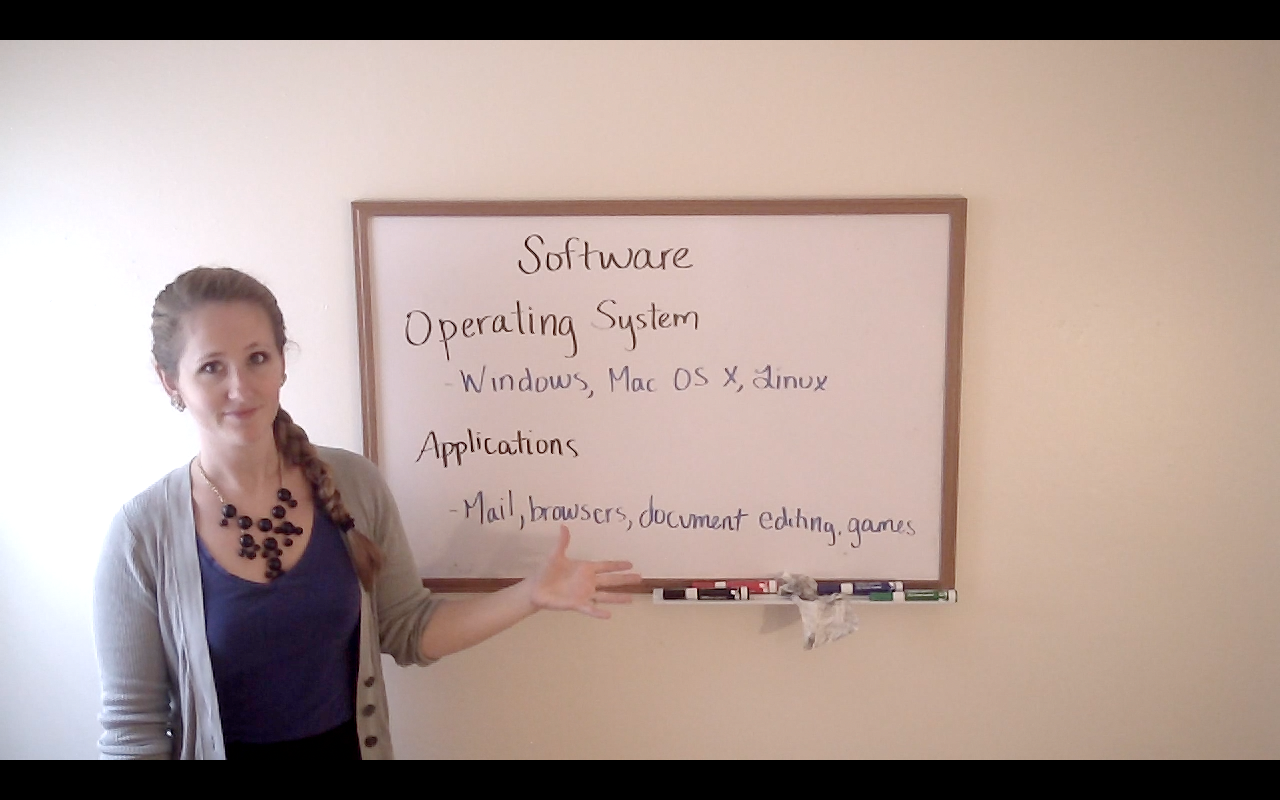 Software
Operating System
- Windows, Mac OS X, Linux
Applications
- Mail, browsers, document editing, games